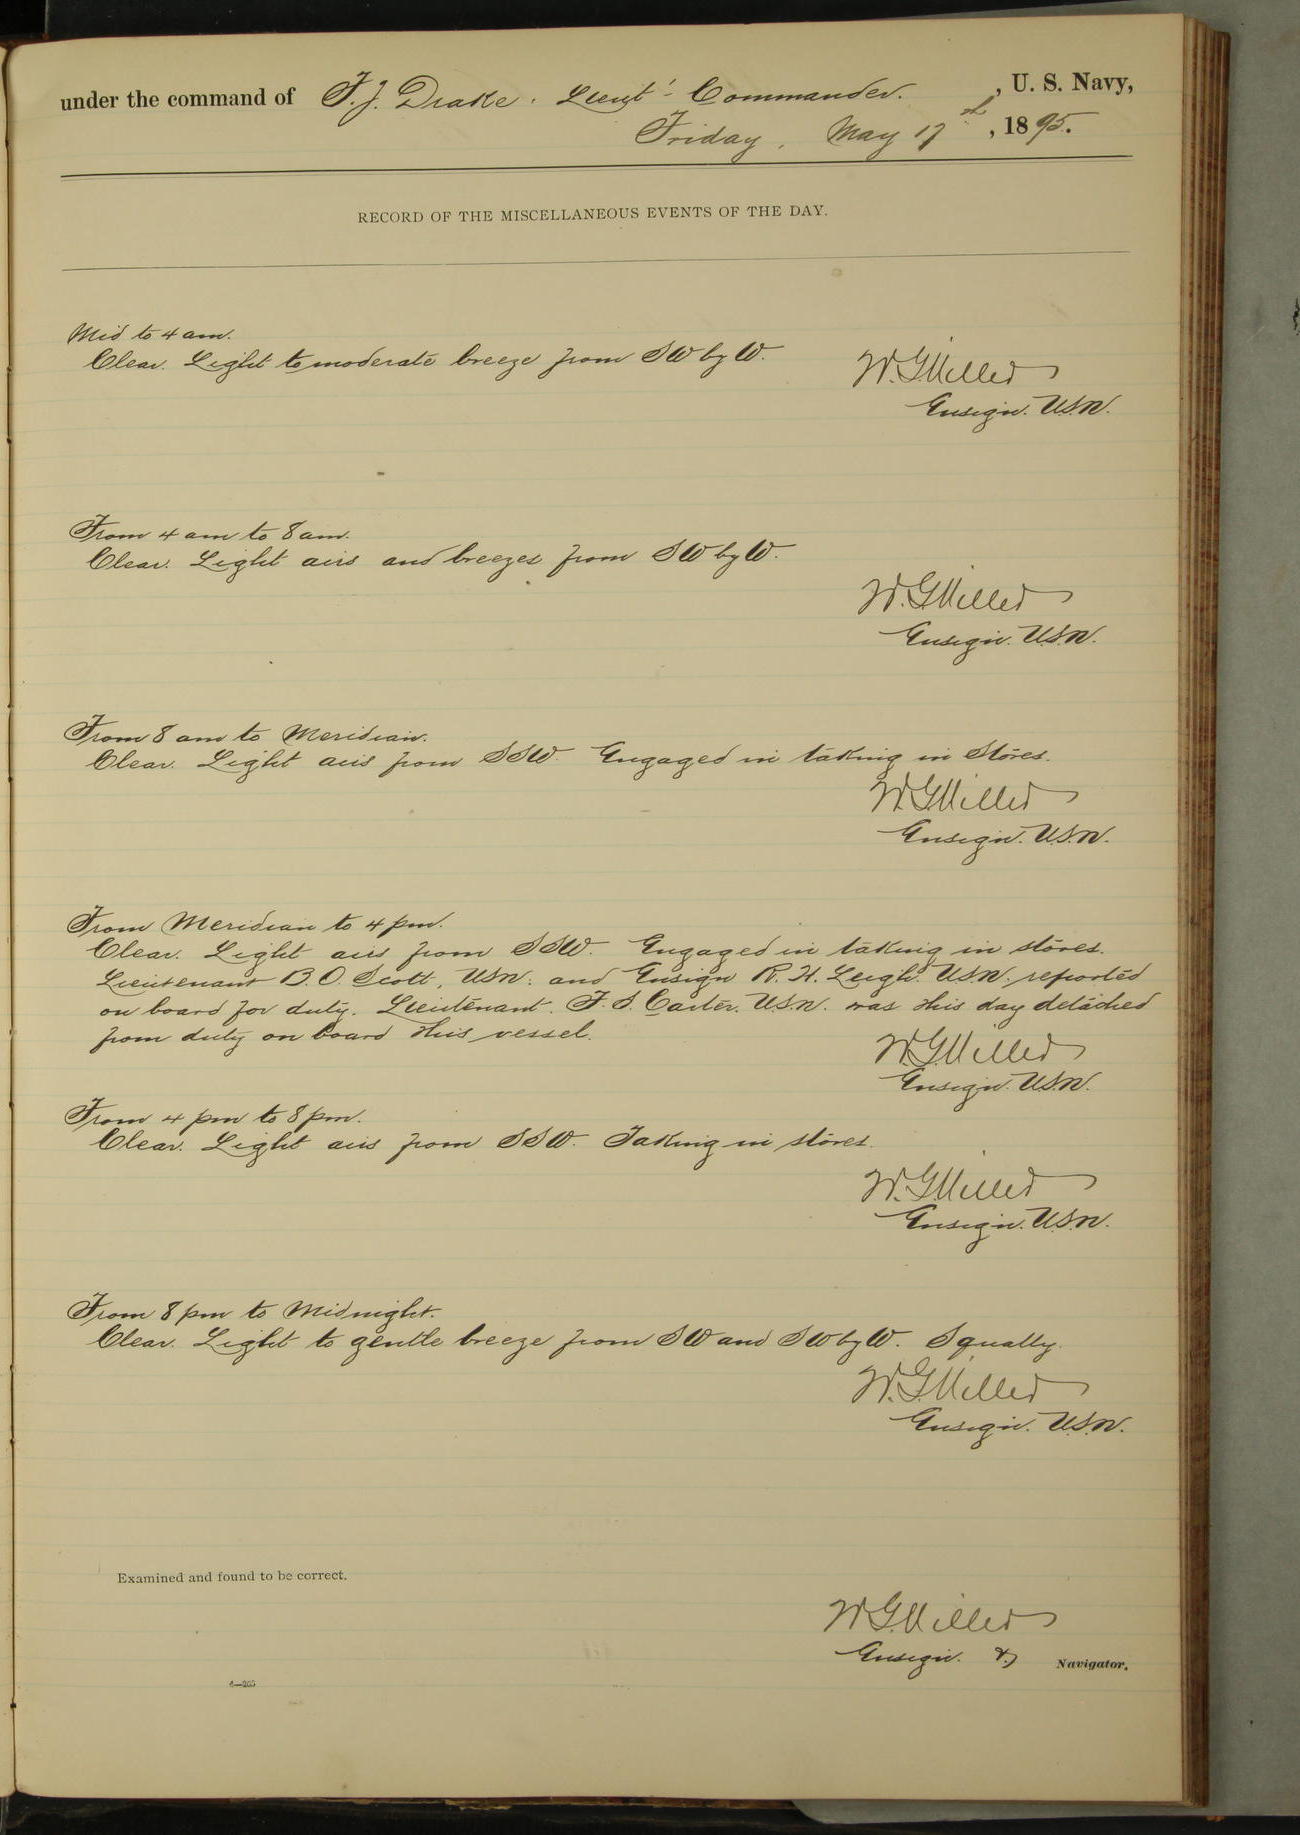 under the command of F. J. Drake, Lieut. Commander, U. S. Navy,
Friday, May 17th, 1895.
RECORD OF THE MISCELLANEOUS EVENTS OF THE DAY.
Mid to 4 am.
Clear. Light to moderate breeze from SW by W.
W. G. Miller
Ensign. U.S.N.
From 4 am to 8 am.
Clear. Light airs and breezes from SW by W.
W. G. Miller
Ensign. U.S.N.
From 8 am to Meridian.
Clear. Light airs from SSW. Engaged in taking in Stores.
W. G. Miller
Ensign. U.S.N.
From Meridian to 4 pm.
Clear. Light airs from SSW. Engaged in taking in stores.
Lieutenant B. O. Scott, USN. and Ensign R. H. Leigh. USN. reported
on board for duty. Lieutenant. F. S. Carter. U.S.N. was this day detached
from duty on board this vessel.
W. G. Miller
Ensign. U.S.N.
From 4 pm to 8 pm.
Clear. Light airs from SSW. Taking in stores.
W. G. Miller
Ensign. U.S.N.
From 8 pm to Midnight.
Clear. Light to gentle breeze from SW and SW by W. Squally.
W. G. Miller
Ensign. U.S.N.
Examined and found to be correct.
W. G. Miller
Ensign. & Navigator.
6—205